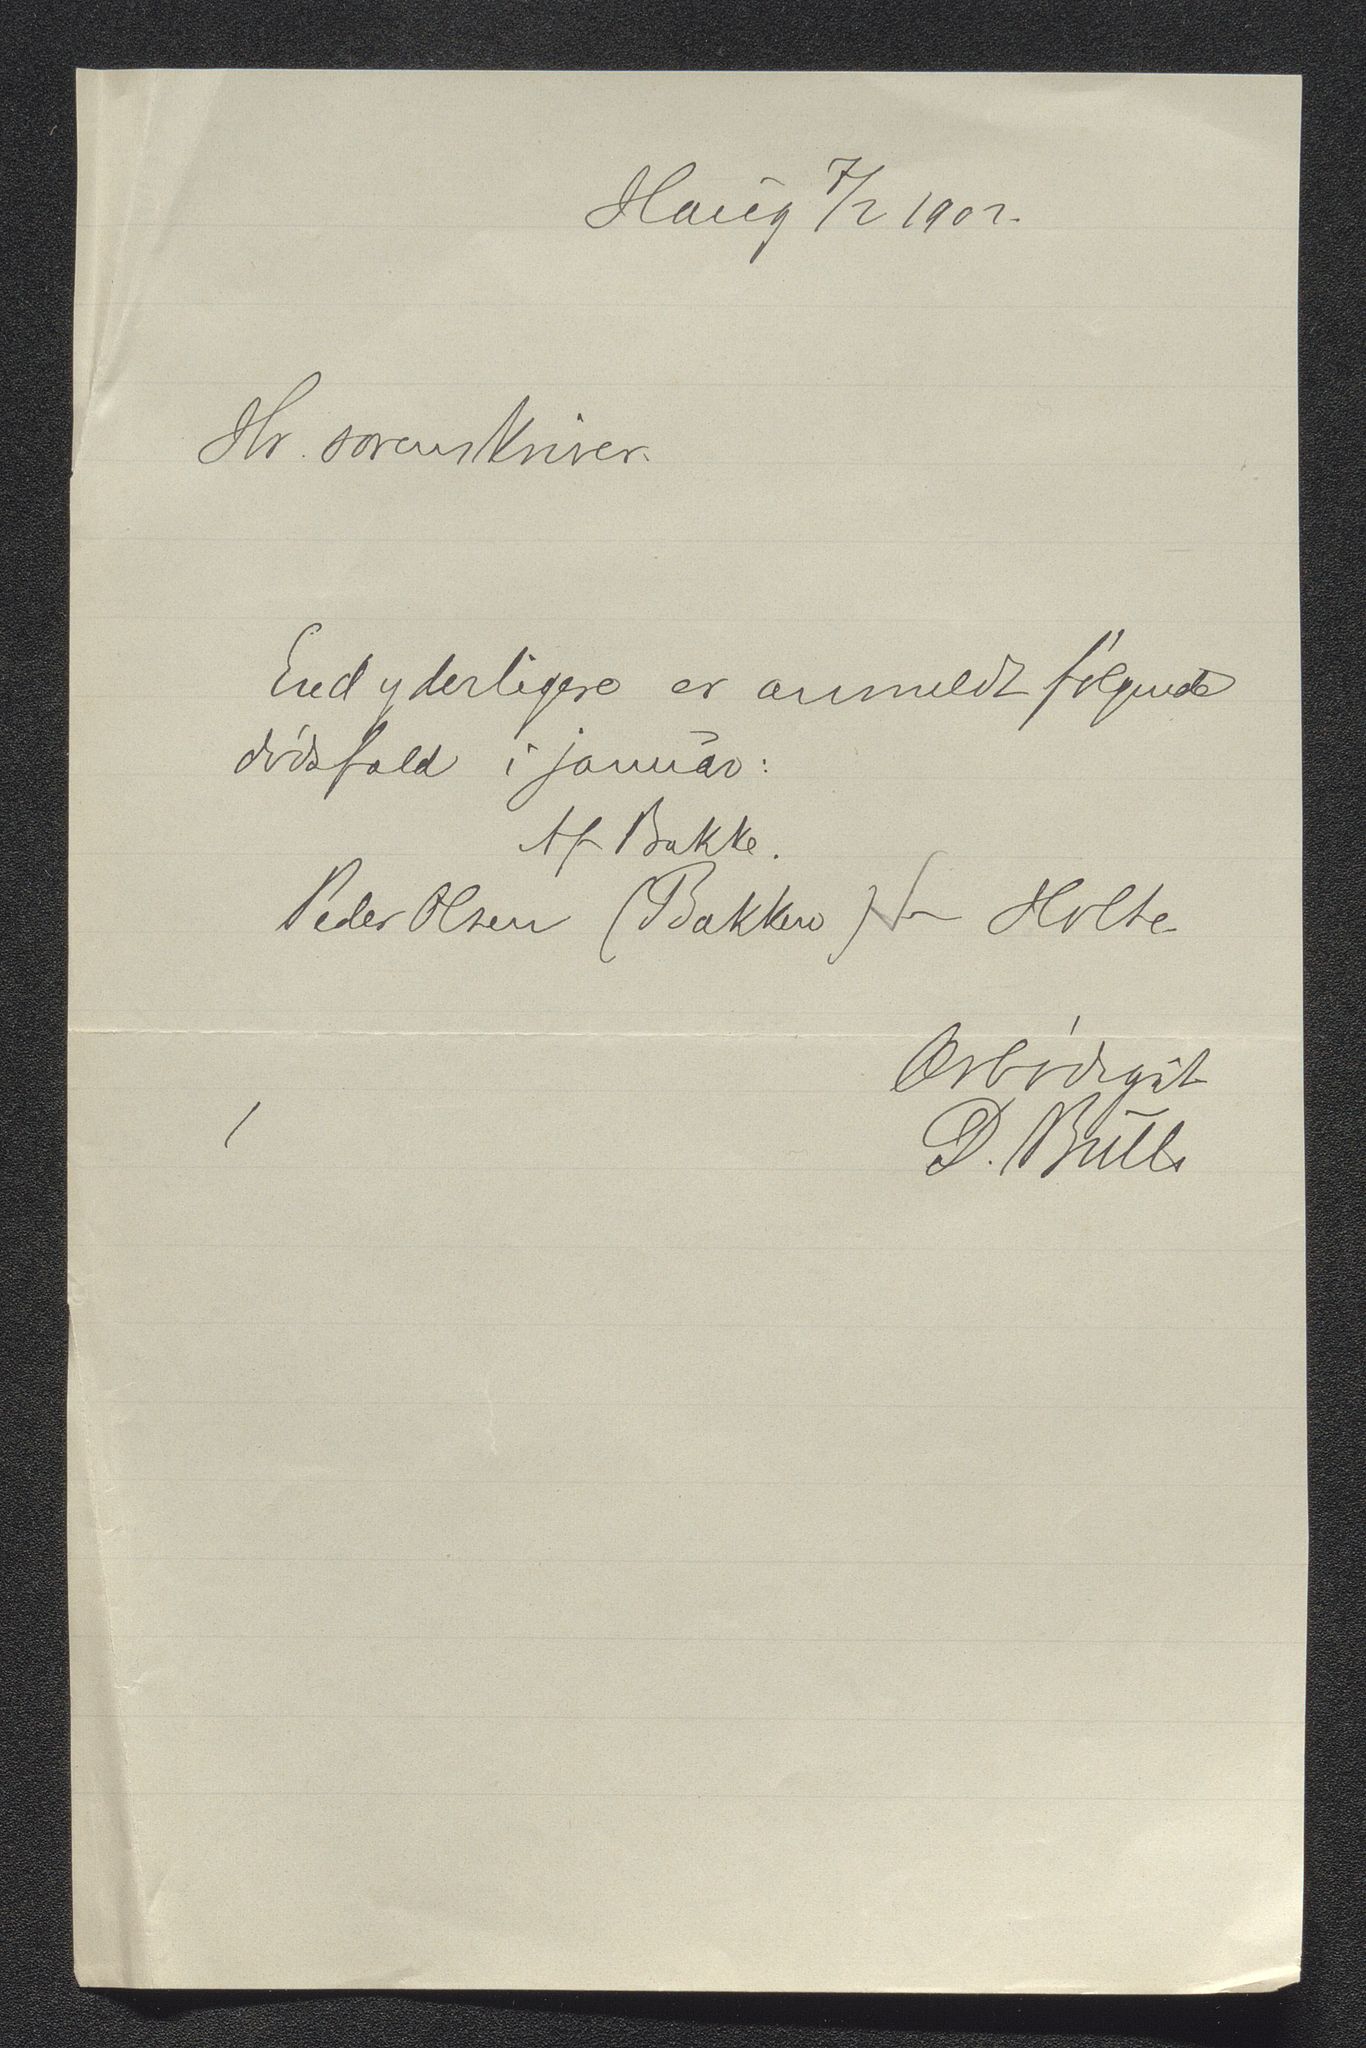 Haug 7/2 1902.
Hr. sorenskriver.
End yderligere er anmeldt følgende
dødsfald i januar:
Af Bakke.
Peder Olsen (Bakken) Holte
Ærbødigst
D. Bull